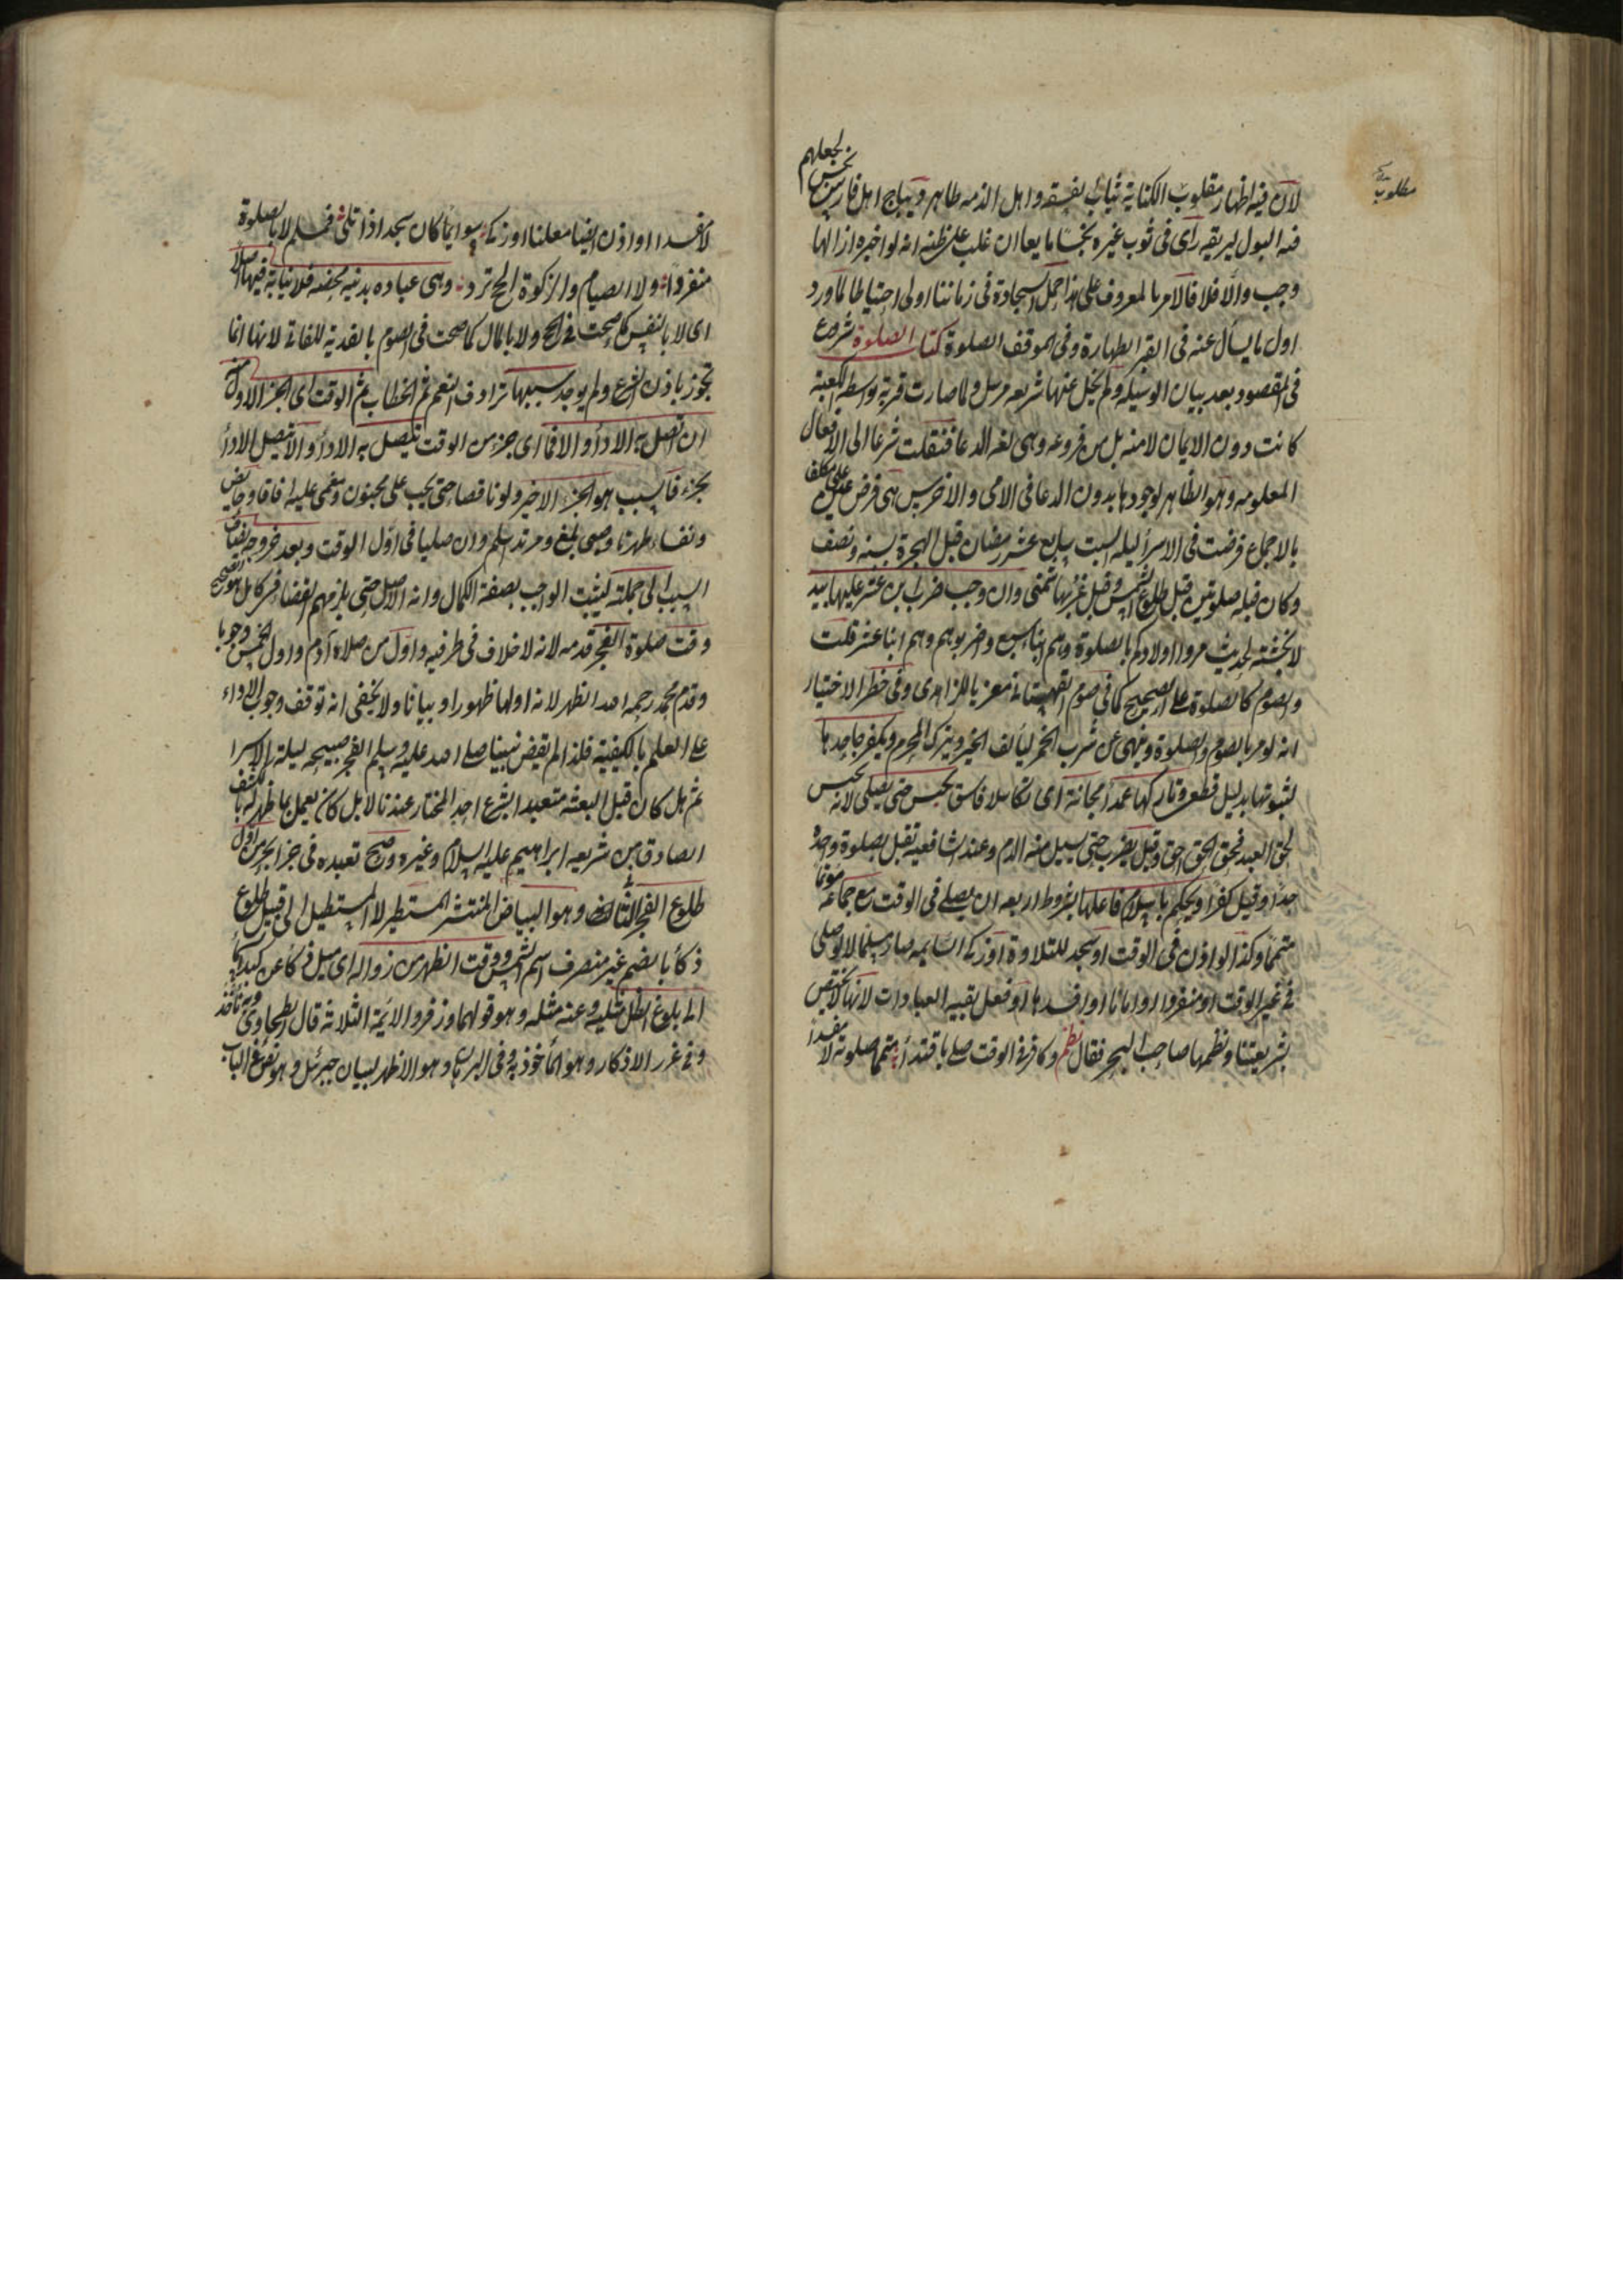 مطلوب
لان فيه اظهار مقلوب الكتابة ثياب الفسقة واهل الذمه طاهر وديباج اهل فارس نجس لجعلهم
فيه البول لبريقه رأى فى ثوب غيره نجسا مايعا ان غلب على ظنه انه لو اخبره ازالها
وجب والا فلا فالامر بالمعروف على هذا حمل السجادة فى زماننا اولى احتياطا لما ورد
اول ما يسأل عنه فى القبر الطهارة وفى الموقف الصلوة كتاب الصلوة شروع
فى المقصود بعد بيان الوسيله ولم تخل عنها شريعه مرسل ولما صارت قربة بواسطه الكعبة
كانت دون الايمان لا منه بل من فروعه وهى لغه الدعا فنقلت شرعا الى الافعال
المعلومه وهو الظاهر لوجودها بدون الدعا فى الامى والاخرس هى فرض عين على كل مكلف
بالاجماع فرضت فى الاسرا ليله السبت سابع عشر رمضان قبل الهجرة بسنه ونصف
وكان قبله صلوتين قبل طلوع الشمس وقبل غروبها شمنى وان وجب ضرب ابن عشر عليها بيد
لا بخشبه لحديث مروا اولادكم بالصلوة وهم ابنا سبع واضربوهم وهم ابنا عشر قلت
والصوم كالصلوة على الصحيح كما فى صوم القهستانى معزيا للزاهدى وفى حظر الاختيار
انه يؤمر بالصوم والصلوة وينهى عن شرب الخمر ليألف الخير ويترك المحرم ويكفر جاحدها
لثبوتها بدليل قطعى وتاركها عمدا مجانة اى تكاسلا فاسق يحبس حتى يصلى لانه يحبس
لحق العبد فحق الحق احق وقيل يضرب حتى يسيل منه الدم وعند الشافعيه يقتل بصلوة واحدة
حدا وقيل كفرا ويحكم باسلام فاعلها بشروط اربعه ان يصلى فى الوقت مع جماعه مؤتما
متمما وكذا لو اذن فى الوقت او سجد للتلاوة او زكى السايمه صار مسلما لا لو صلى
فى غير الوقت او منفردا او اماما او افسدها او فعل بقيه العبادات لانها لا تختص
بشريعتنا ونظمها صاحب البحر فقال نظم وكافر فى الوقت صلى باقتدأ متمما صلوته لا مفسدا
لا مفسدا او اذن ايضا معلنا او زكى سوايما كان سجد اذا تلى فمسلم لا بالصلوة
منفردا ولا الصيام والزكوة الحج ترد وهى عباده بدنيه محضه فلا نيابة فيها اصلا
اى لا بالنفس كما صحت فى الحج ولا بالمال كما صحت فى الصوم بالفدية للفانى لانها انما
تجوز باذن الشرع ولم يوجد سببها ترادف النعم ثم الخطاب ثم الوقت اى الجزء الاول منه
ان اتصل به الادأ والا فما اى جزء من الوقت يتصل به الادأ والا يتصل الادأ
بجزء فالسبب هو الجزء الاخير ولو ناقصا حتى يجب على مجنون ومغمى عليه افاقا وحايض
ونفساء طهرتا وصبى بلغ ومرتد اسلم وان صليا فى اول الوقت وبعد خروجه يضاف
السبب الى جملته ليثبت الواجب بصفة الكمال وانه الاصل حتى يلزمهم القضا فى كامل هو الصحيح
وقت صلوة الفجر قدمه لانه لا خلاف فى طرفيه واول من صلاه آدم واول الخمس وجوبا
وقدم محمد رحمه الله الظهر لانه اولها ظهورا وبيانا ولا يخفى انه توقف وجوب الاداء
على العلم بالكيفية فلذا لم يقض نبينا صلى الله عليه وسلم الفجر صبيحه ليلة الاسرا
ثم هل كان قبل البعثه متعبدا بشرع احد المختار عندنا لا بل كان يعمل بما ظهر له بالكشف
الصادق من شريعه ابراهيم عليه السلام وغيره وصح تعبده فى حرا بحر من اول
طلوع الفجر الثانى وهو البياض المنتشر المستطير لا المستطيل الى قبيل طلوع
ذكأ بالضم غير منصرف اسم الشمس ووقت الظهر من زواله اى ميل ذكا عن كبد السما
الى بلوغ الظل مثليه وعنه مثله وهو قولهما وزفر والائمة الثلاثة قال الطحاوى وبه نأخذ
وفى غرر الاذكار وهو المأخوذ به وفى البرهان وهو الاظهر لبيان جبرئل وهو نص فى الباب